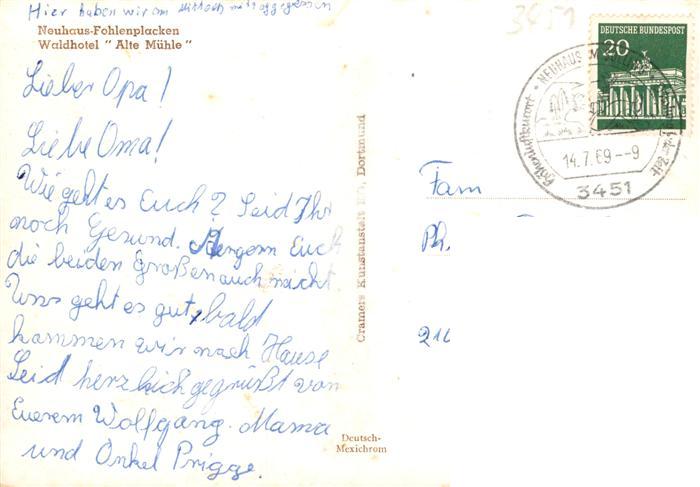 Hier haben wir am Mittwoch mittaggegessen
Neuhaus-Fohlenplacken
Waldhotel "Alte Mühle"
Lieber Opa!
Liebe Oma!
Wie geht es Euch? Seid Ihr
noch Gesund. Aergern Euch
die beiden Großen auch nicht.
Uns geht es gut, bald
kommen wir nach Hause
Seid herzlich gegrüßt von
Euerem Wolfgang. Mama
und Onkel Prigge.
Cramers Kunstanstalt KG, Dortmund
Deutsch-
Mexichrom
3451
DEUTSCHE BUNDESPOST
20
NEUHAUS
Höhenluftkurort
14.7.69--9
3451
Fam
Ph.
216